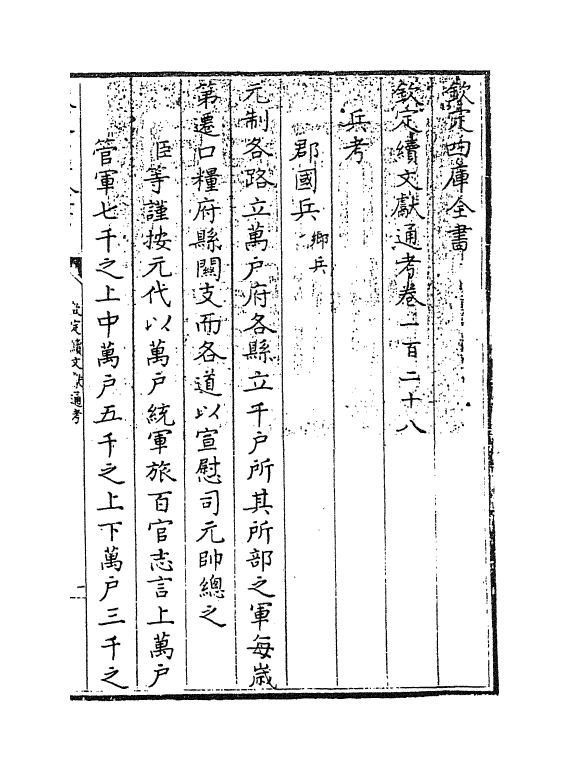 欽定四庫全書
欽定續文獻通考卷一百二十八
兵考
郡國兵 鄉兵
元制各路立萬戶府各縣立千戶所其所部之軍每歲
第遷口糧府縣關支而各道以宣慰司元帥總之
臣等謹按元代以萬戶統軍旅百官志言上萬戶
管軍七千之上中萬戶五千之上下萬戶三千之
欽定續文獻通考